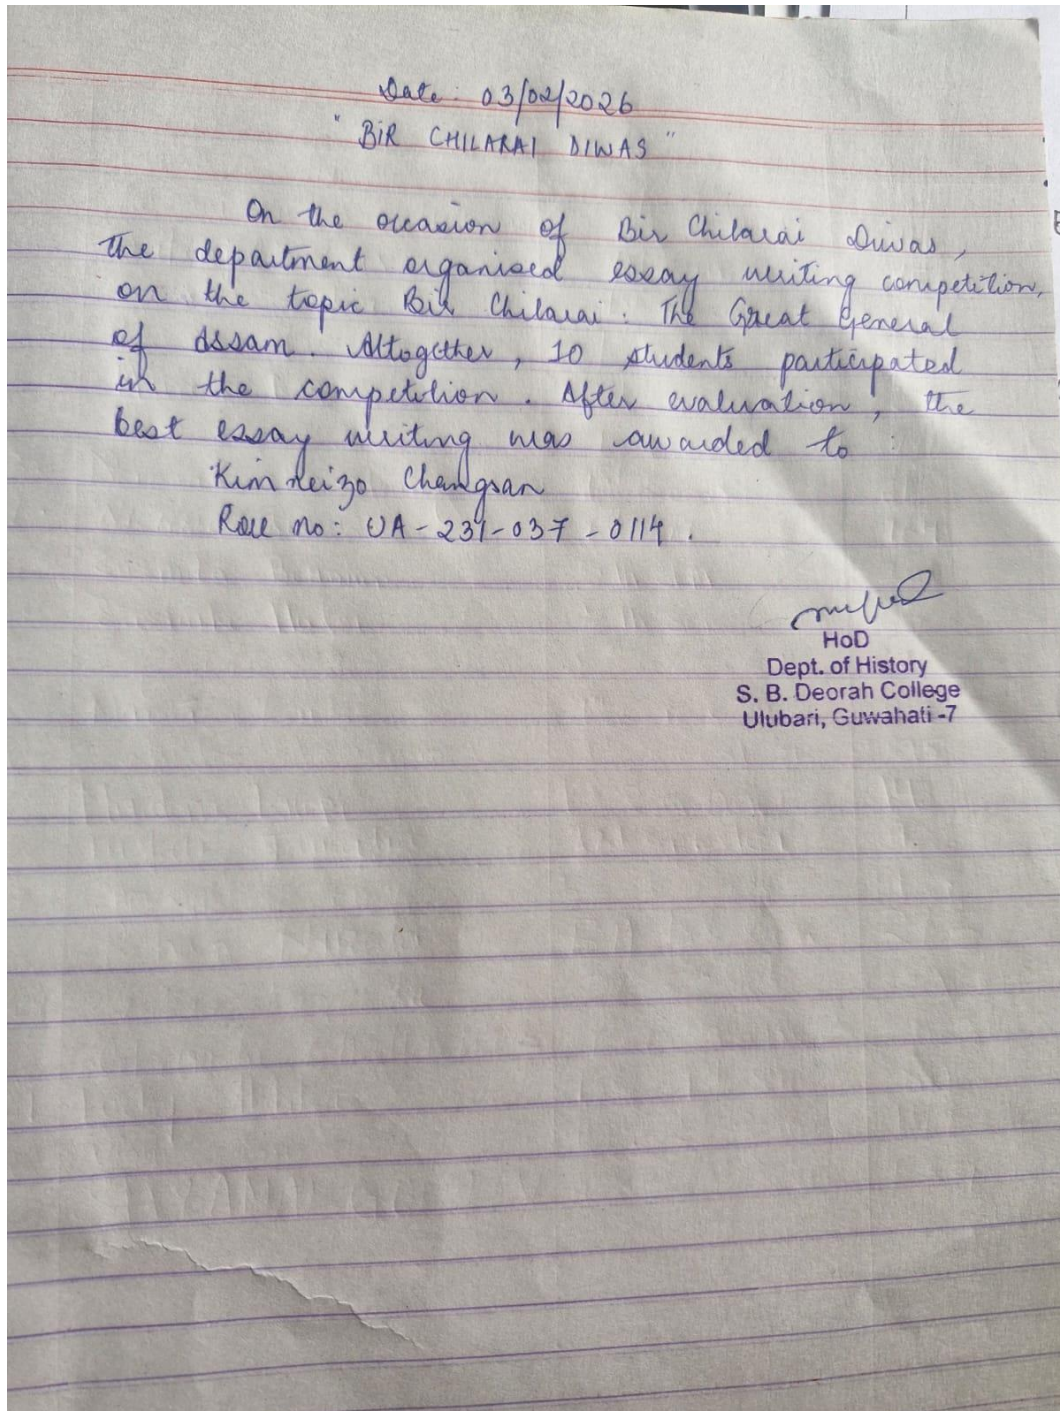 Date: 03/02/2026
"BIR CHILARAI DIWAS"
On the occasion of Bir Chilarai Diwas,
the department organised essay writing competition,
on the topic Bir Chilarai: The Great General
of Assam. Altogether, 10 students participated
in the competition. After evaluation, the
best essay writing was awarded to:
Kimneizo Changsan
Roll no: UA-231-037-0114.
HoD
Dept. of History
S. B. Deorah College
Ulubari, Guwahati -7